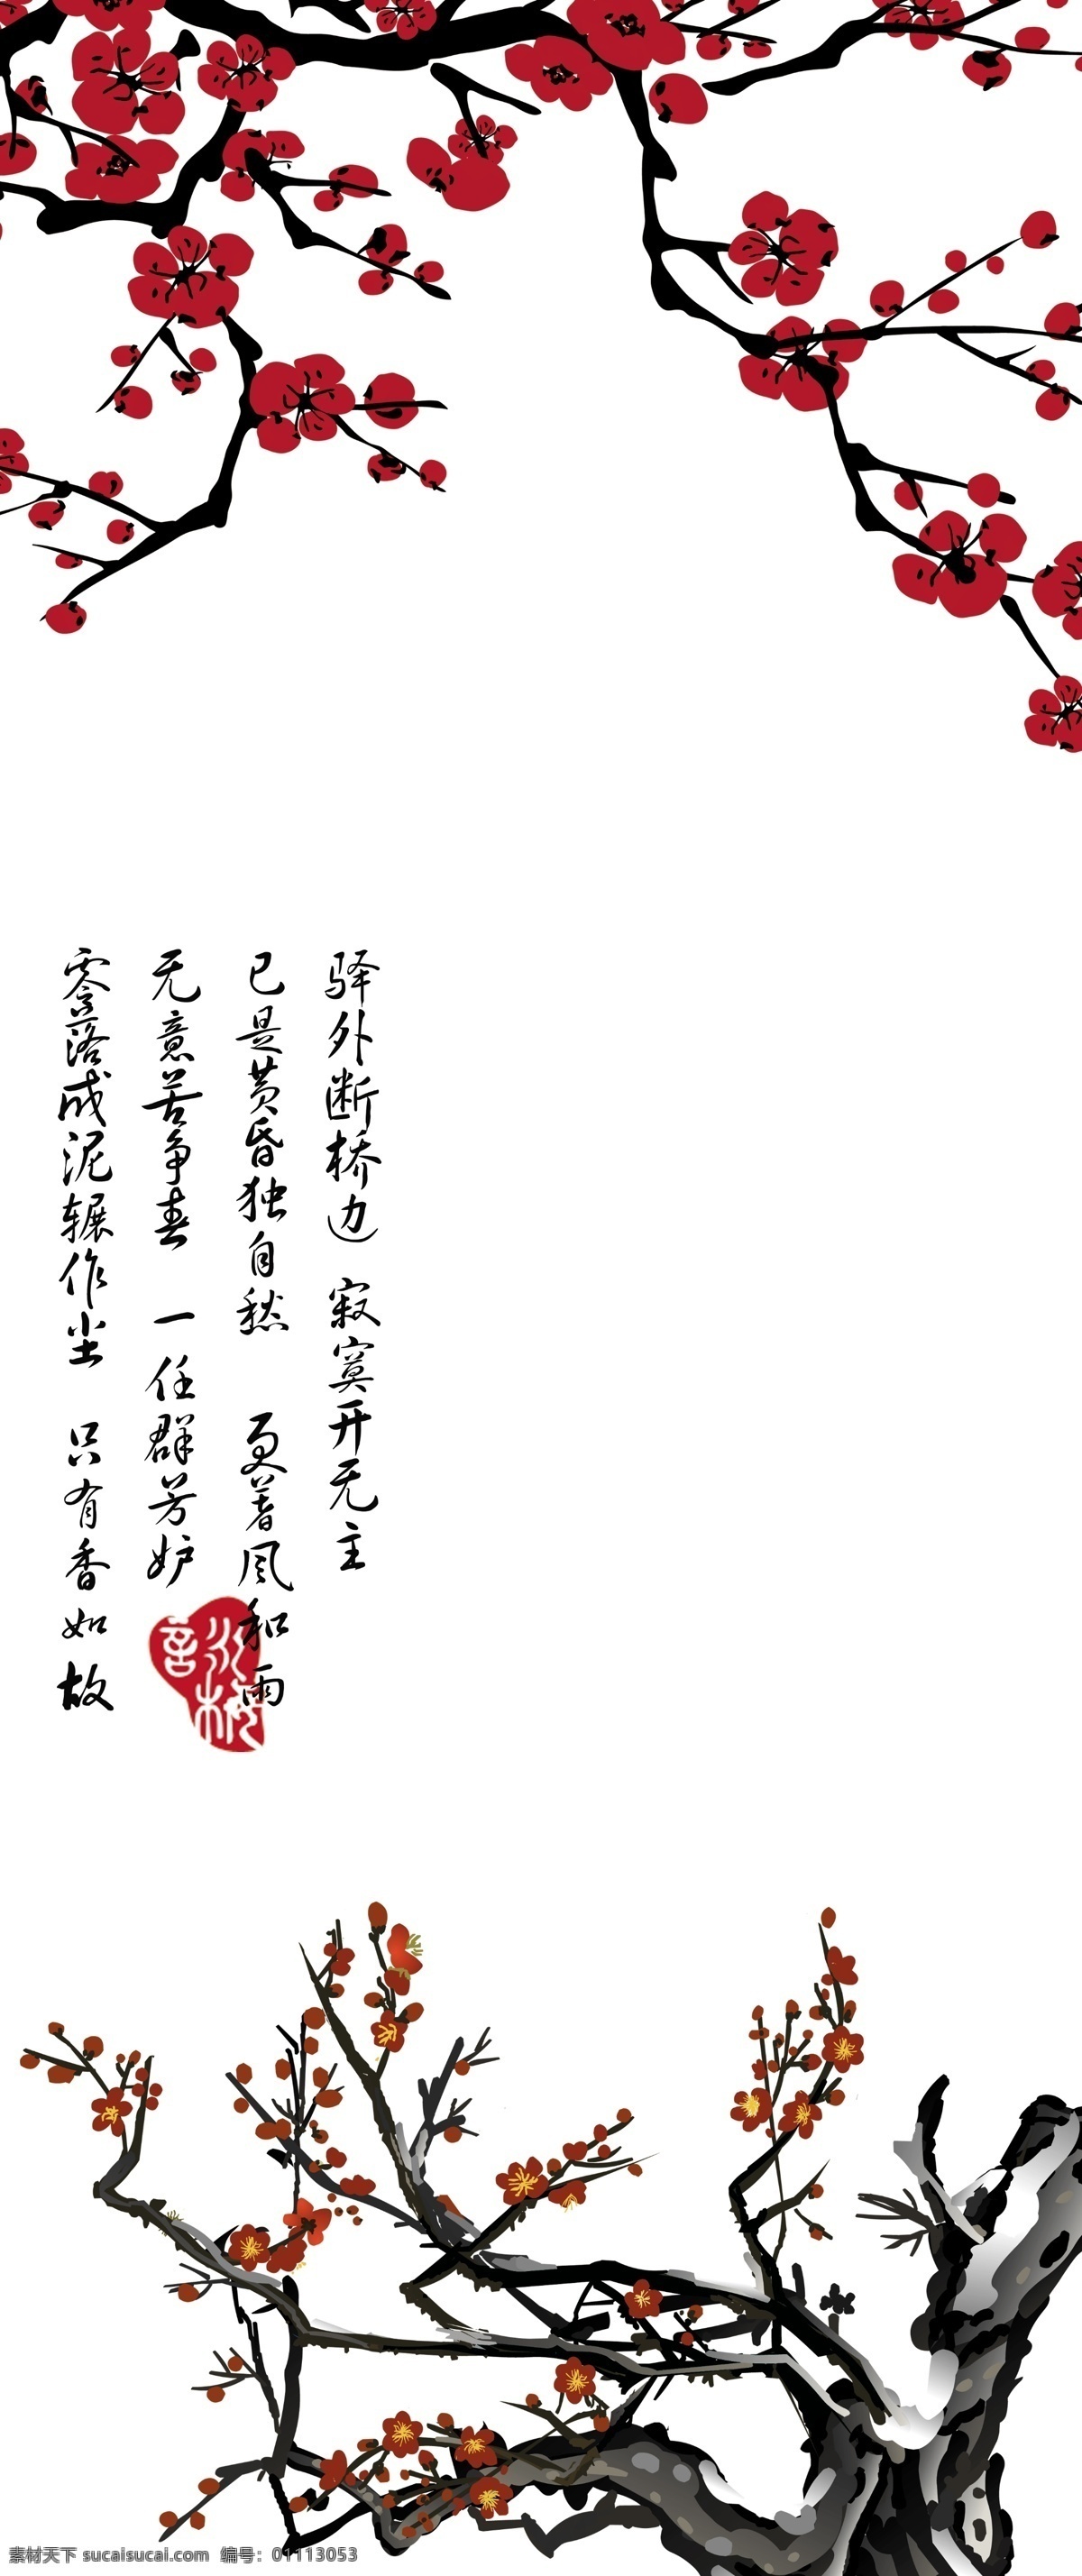 驿外断桥边 寂寞开无主
已是黄昏独自愁 更著风和雨
无意苦争春 一任群芳妒
零落成泥辗作尘 只有香如故
素材天下 sucaisucai.com 编号：01113053